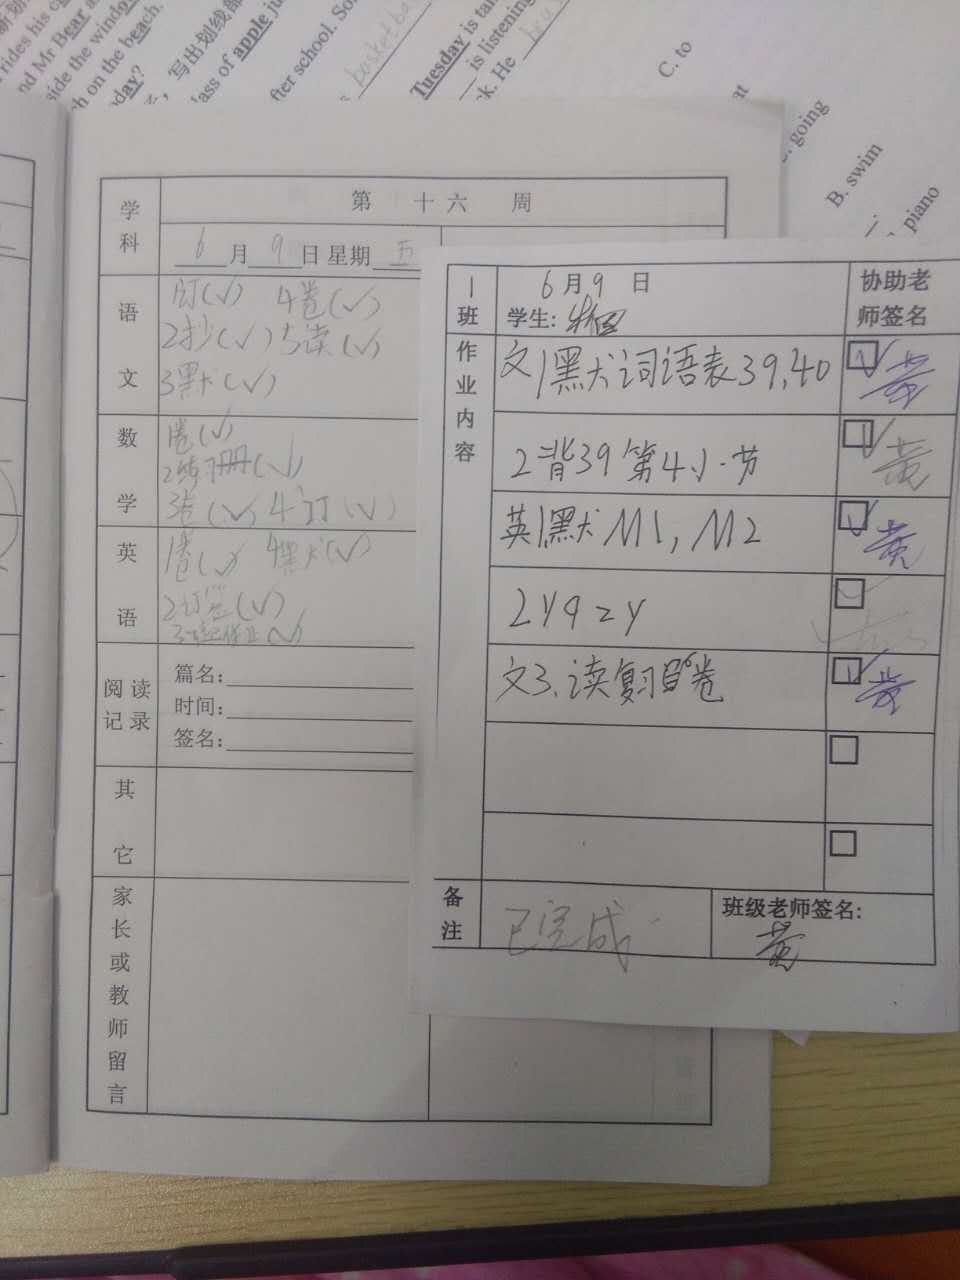 rides his
nd Mr Bear a
side the windo
h on the beach.
day?
写出划线部
lass of apple ju
fter school. So
basketba
Tuesday is tal
is listening
k. He
C. to
going
B. swim
piano
学科
第 十六 周
6月9日 星期五
语文
1订(√) 4卷(√)
2抄(√) 5读(√)
3默(√)
数学
1卷(√)
2练习册(√)
3卷(√) 4订(√)
英语
1卷(√) 4默(√)
2订(√)
阅读记录
篇名:
时间:
签名:
其它
家长或教师留言
1班
6月9日
学生:
协助老师签名
作业内容
文1默词语表39,40
黄
2背39第4小节
黄
英1.默M1,M2
黄
2 y9 z y
文3.读复习卷
黄
备注
已完成
班级老师签名:
黄